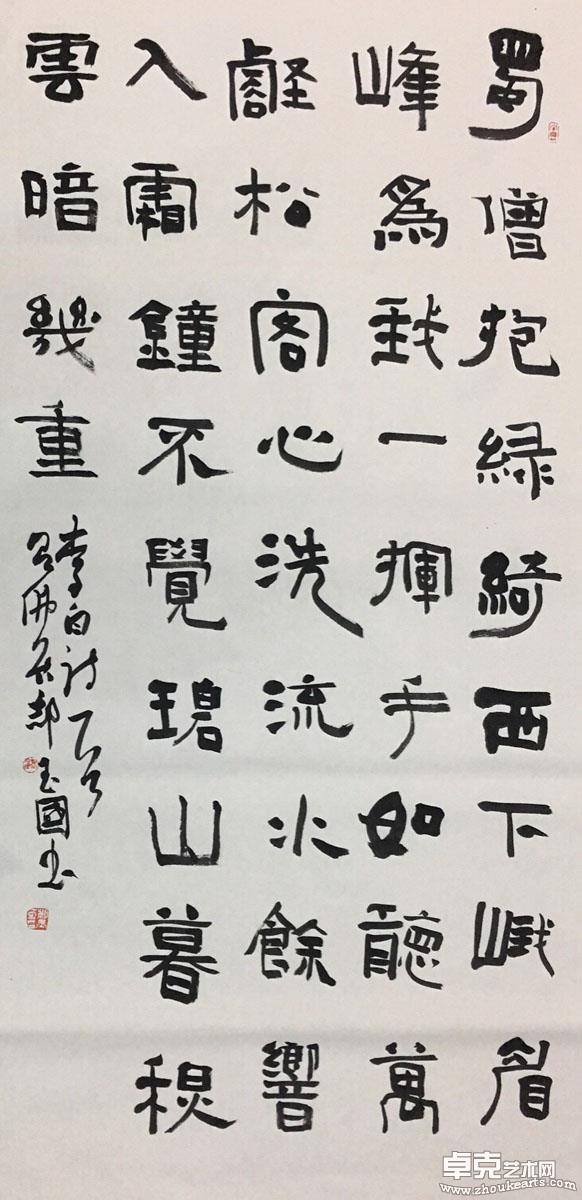 蜀僧抱緑綺西下峨眉
峰爲我一揮手如聽萬
壑松客心洗流水餘響
入霜鐘不覺碧山暮秋
雲暗幾重
李白诗
佛居郝玉國书
卓克艺术网
www.zhoukearts.com